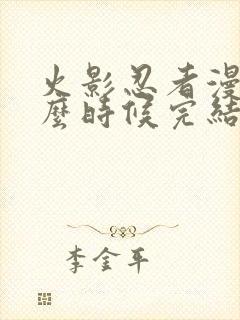 火影忍者漫
麼時候完結
李金平